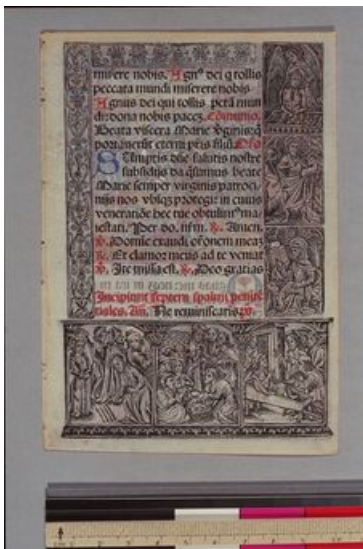 misere nobis. Agnꝰ dei q̄ tollis
peccata mundi miserere nobis
Agnus dei qui tollis pctā mun
di: dona nobis pacez. Cōmunio.
Beata viscera Marie v̓ginis: q̄
portauerūt eterni pris filiū.
Sumptis dn̄e salutis nostre
subsidijs da q̄sumus beate
Marie semper virginis patroci
nijs nos vbiqz protegi: in cuius
veneratiōe hec tue obtulimꝰ ma
iestati. Per do. nr̄m. ℟. Amen.
℣. Domine exaudi ōronem meaz
℟. Et clamor meus ad te veniat
℣. Ite missa est. ℟. Deo gratias
Incipiunt septem psalmi penitē
tiales. An̄. Ne reminiscaris. ps.